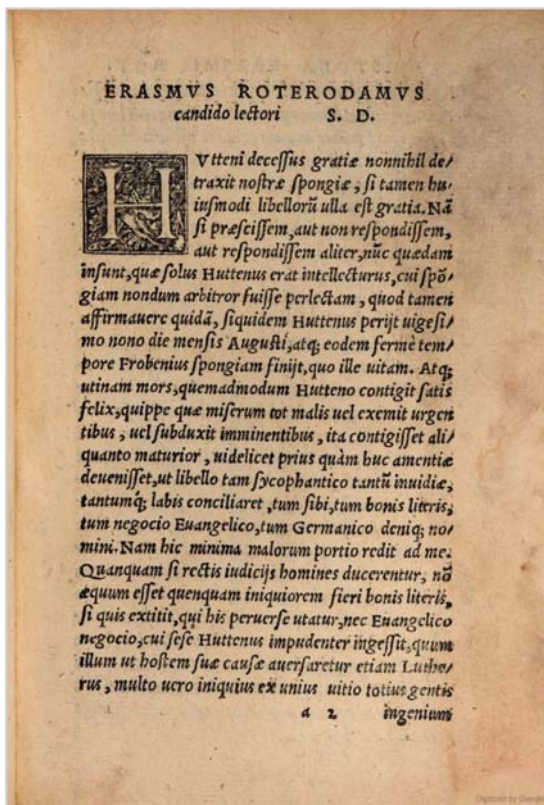 ERASMVS ROTERODAMVS
candido lectori S. D.
HVtteni decessus gratiæ nonnihil de/
traxit nostræ spongiæ, si tamen hu-
iusmodi libellorũ ulla est gratia. Nã
si præscissem, aut non respondissem,
aut respondissem aliter, nũc quædam
insunt, quæ solus Huttenus erat intellecturus, cui spõ/
giam nondum arbitror fuisse perlectam, quod tamen
affirmauere quidã, siquidem Huttenus perijt uigesi/
mo nono die mensis Augusti, atq; eodem fermè tem/
pore Frobenius spongiam finijt, quo ille uitam. Atq;
utinam mors, quemadmodum Hutteno contigit satis
felix, quippe quæ miserum tot malis uel exemit urgen
tibus, uel subduxit imminentibus, ita contigisset ali/
quanto maturior, uidelicet prius quàm huc amentiæ
deuenisset, ut libello tam sycophantico tantũ inuidiæ,
tantumq́; labis conciliaret, tum sibi, tum bonis literis,
tum negocio Euangelico, tum Germanico deniq; no/
mini. Nam hic minima malorum portio redit ad me.
Quanquam si rectis iudicijs homines ducerentur, nõ
æquum esset quenquam iniquiorem fieri bonis literis,
si quis extitit, qui his peruerse utatur, nec Euangelico
negocio, cui sese Huttenus impudenter ingessit, quum
illum ut hostem suæ causæ auersaretur etiam Luthe/
rus, multo uero iniquius ex unius uitio totius gentis
a 2 ingenium
Digitized by Google